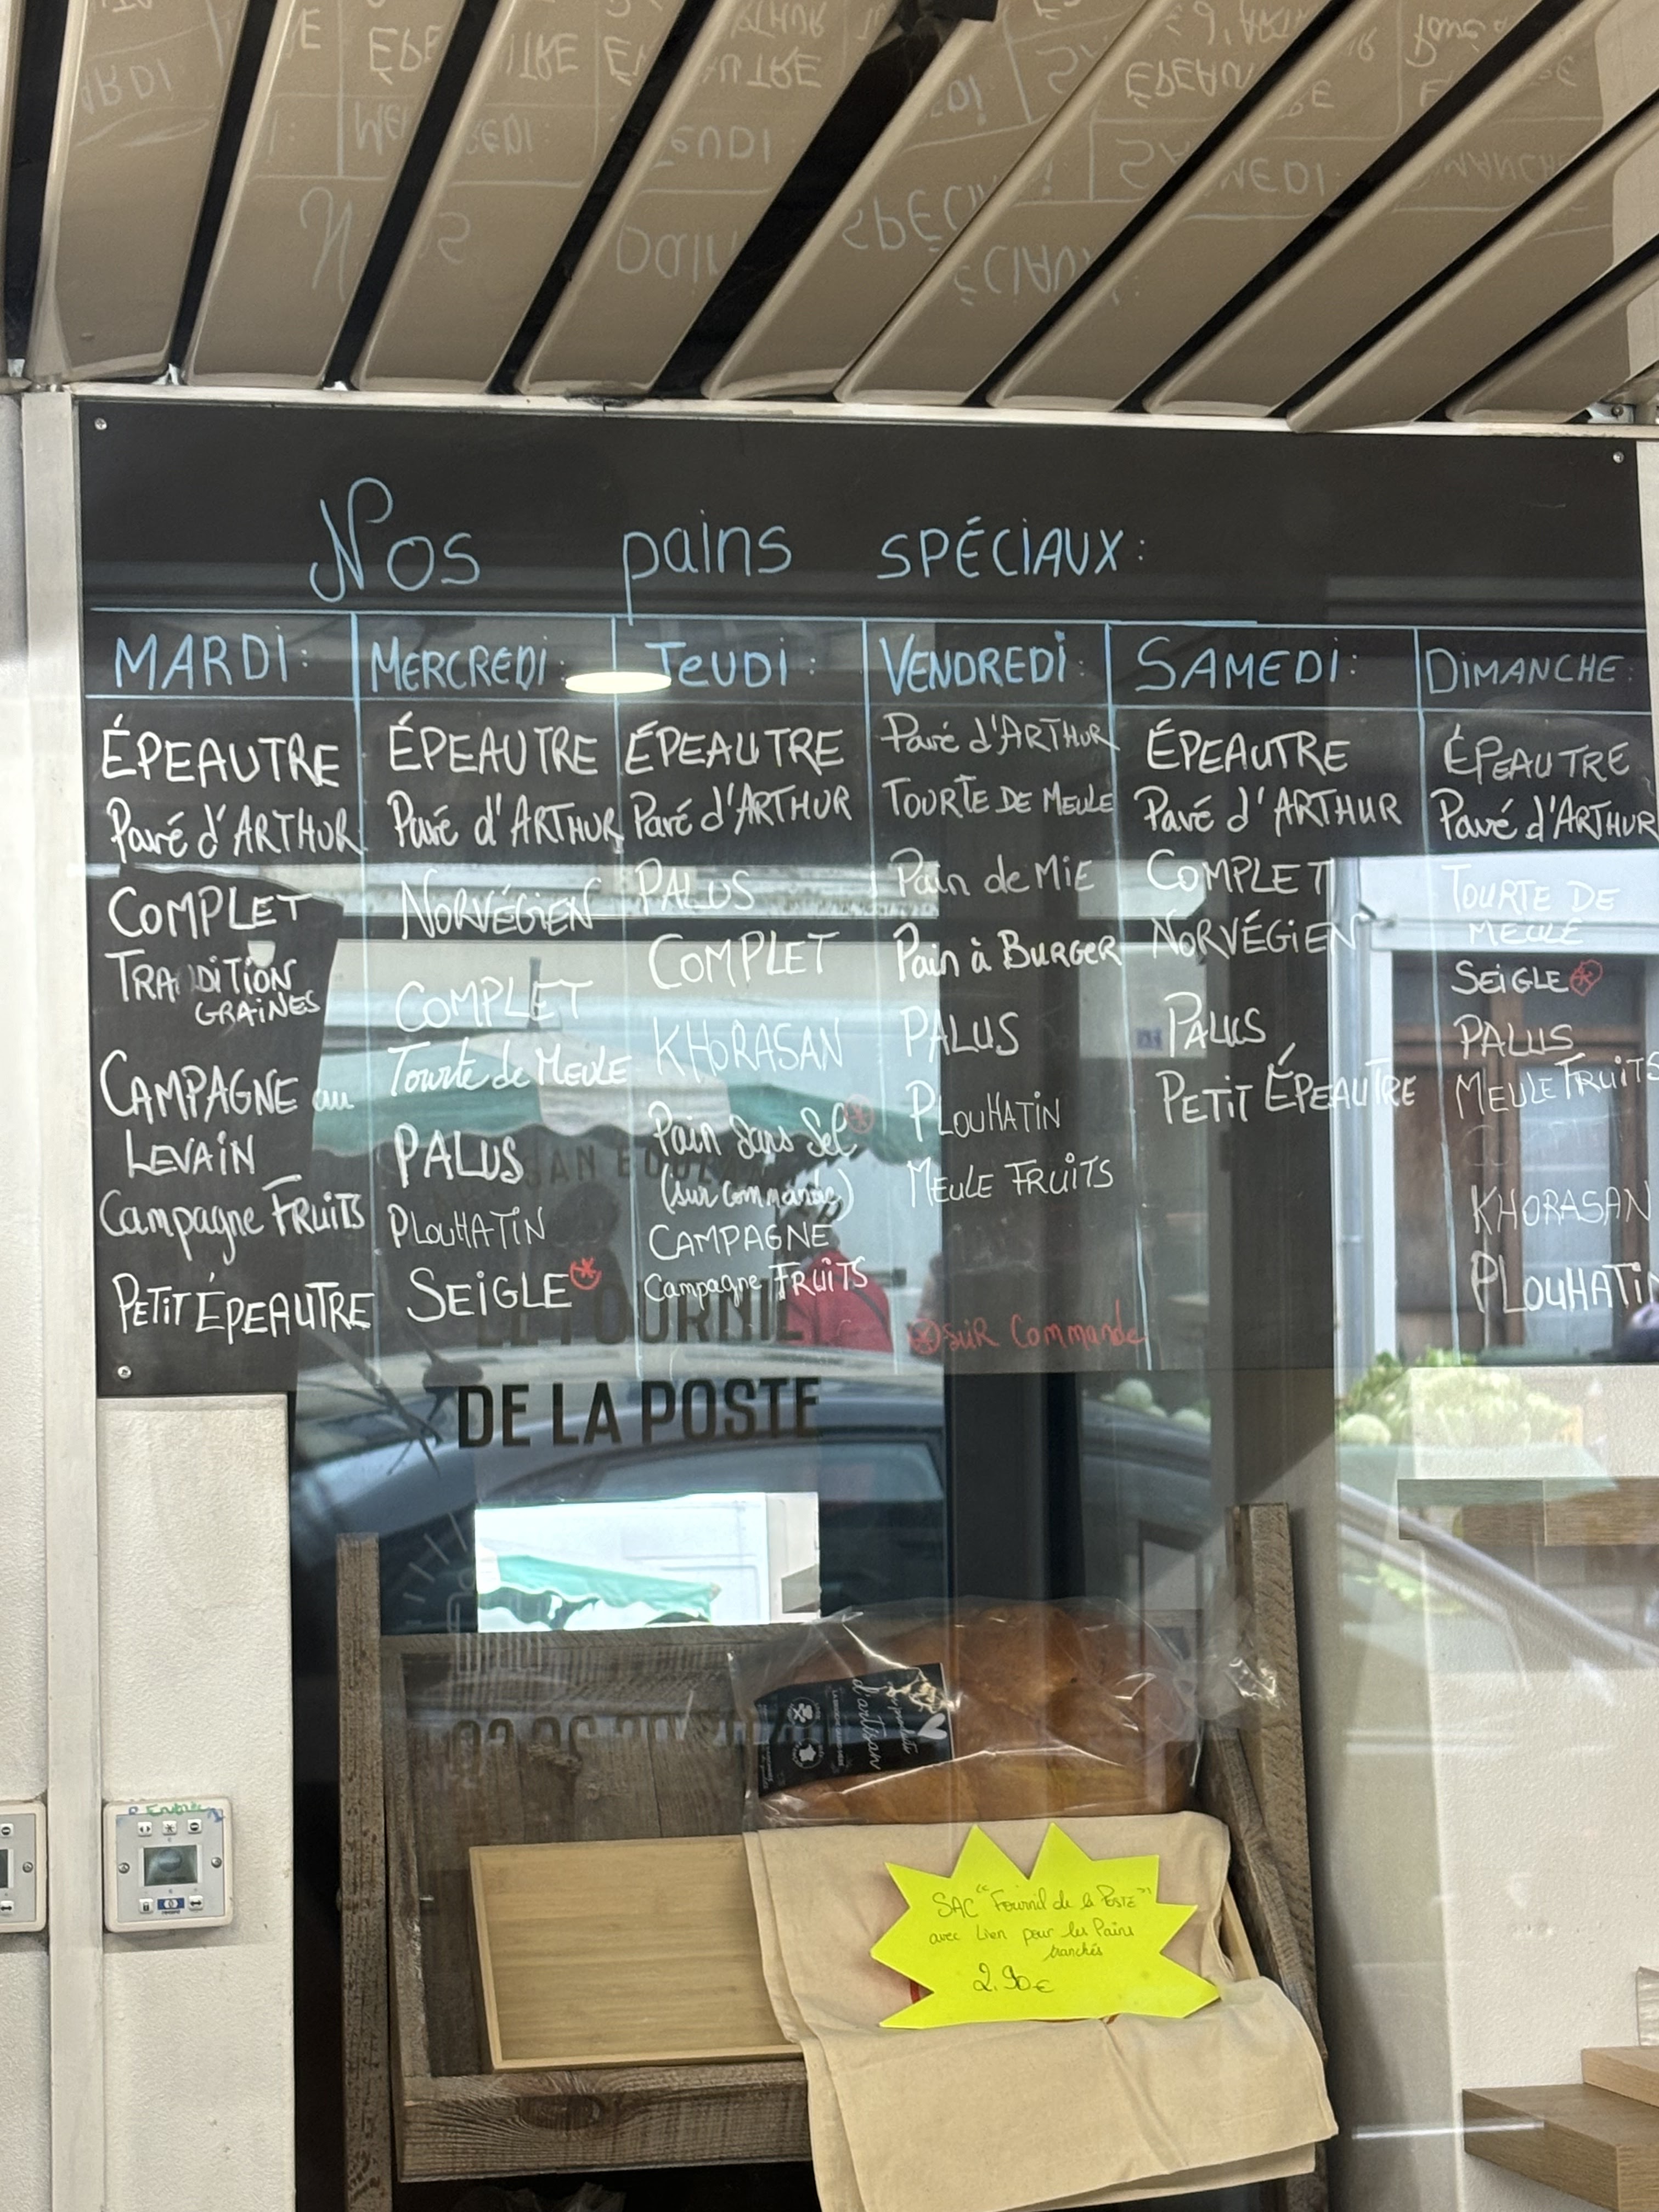 Nos pains SPÉCIAUX:
MARDI:
ÉPEAUTRE
Pavé d'ARTHUR
COMPLET
TRADITION
GRAINES
CAMPAGNE au
LEVAIN
Campagne FRUITS
PETIT ÉPEAUTRE
MERCREDI:
ÉPEAUTRE
Pavé d'ARTHUR
NORVÉGIEN
COMPLET
Tourte de MEULE
PALUS
PLOUHATIN
SEIGLE
JEUDI:
ÉPEAUTRE
Pavé d'ARTHUR
PALUS
COMPLET
KHORASAN
Pain Sans Sel
(sur commande)
CAMPAGNE
Campagne FRUITS
VENDREDI:
Pavé d'ARTHUR
TOURTE DE MEULE
Pain de MIE
Pain à BURGER
PALUS
PLOUHATIN
MEULE FRUITS
SUR Commande
SAMEDI:
ÉPEAUTRE
Pavé d'ARTHUR
COMPLET
NORVÉGIEN
PALUS
PETIT ÉPEAUTRE
DIMANCHE:
ÉPEAUTRE
Pavé d'ARTHUR
TOURTE DE
MEULE
SEIGLE
PALUS
MEULE FRUITS
KHORASAN
PLOUHATIN
LE FOURNIL
DE LA POSTE
d'artisan
SAC "Fournil de la POSTE"
avec Lien pour les Pains
tranchés
2.90€